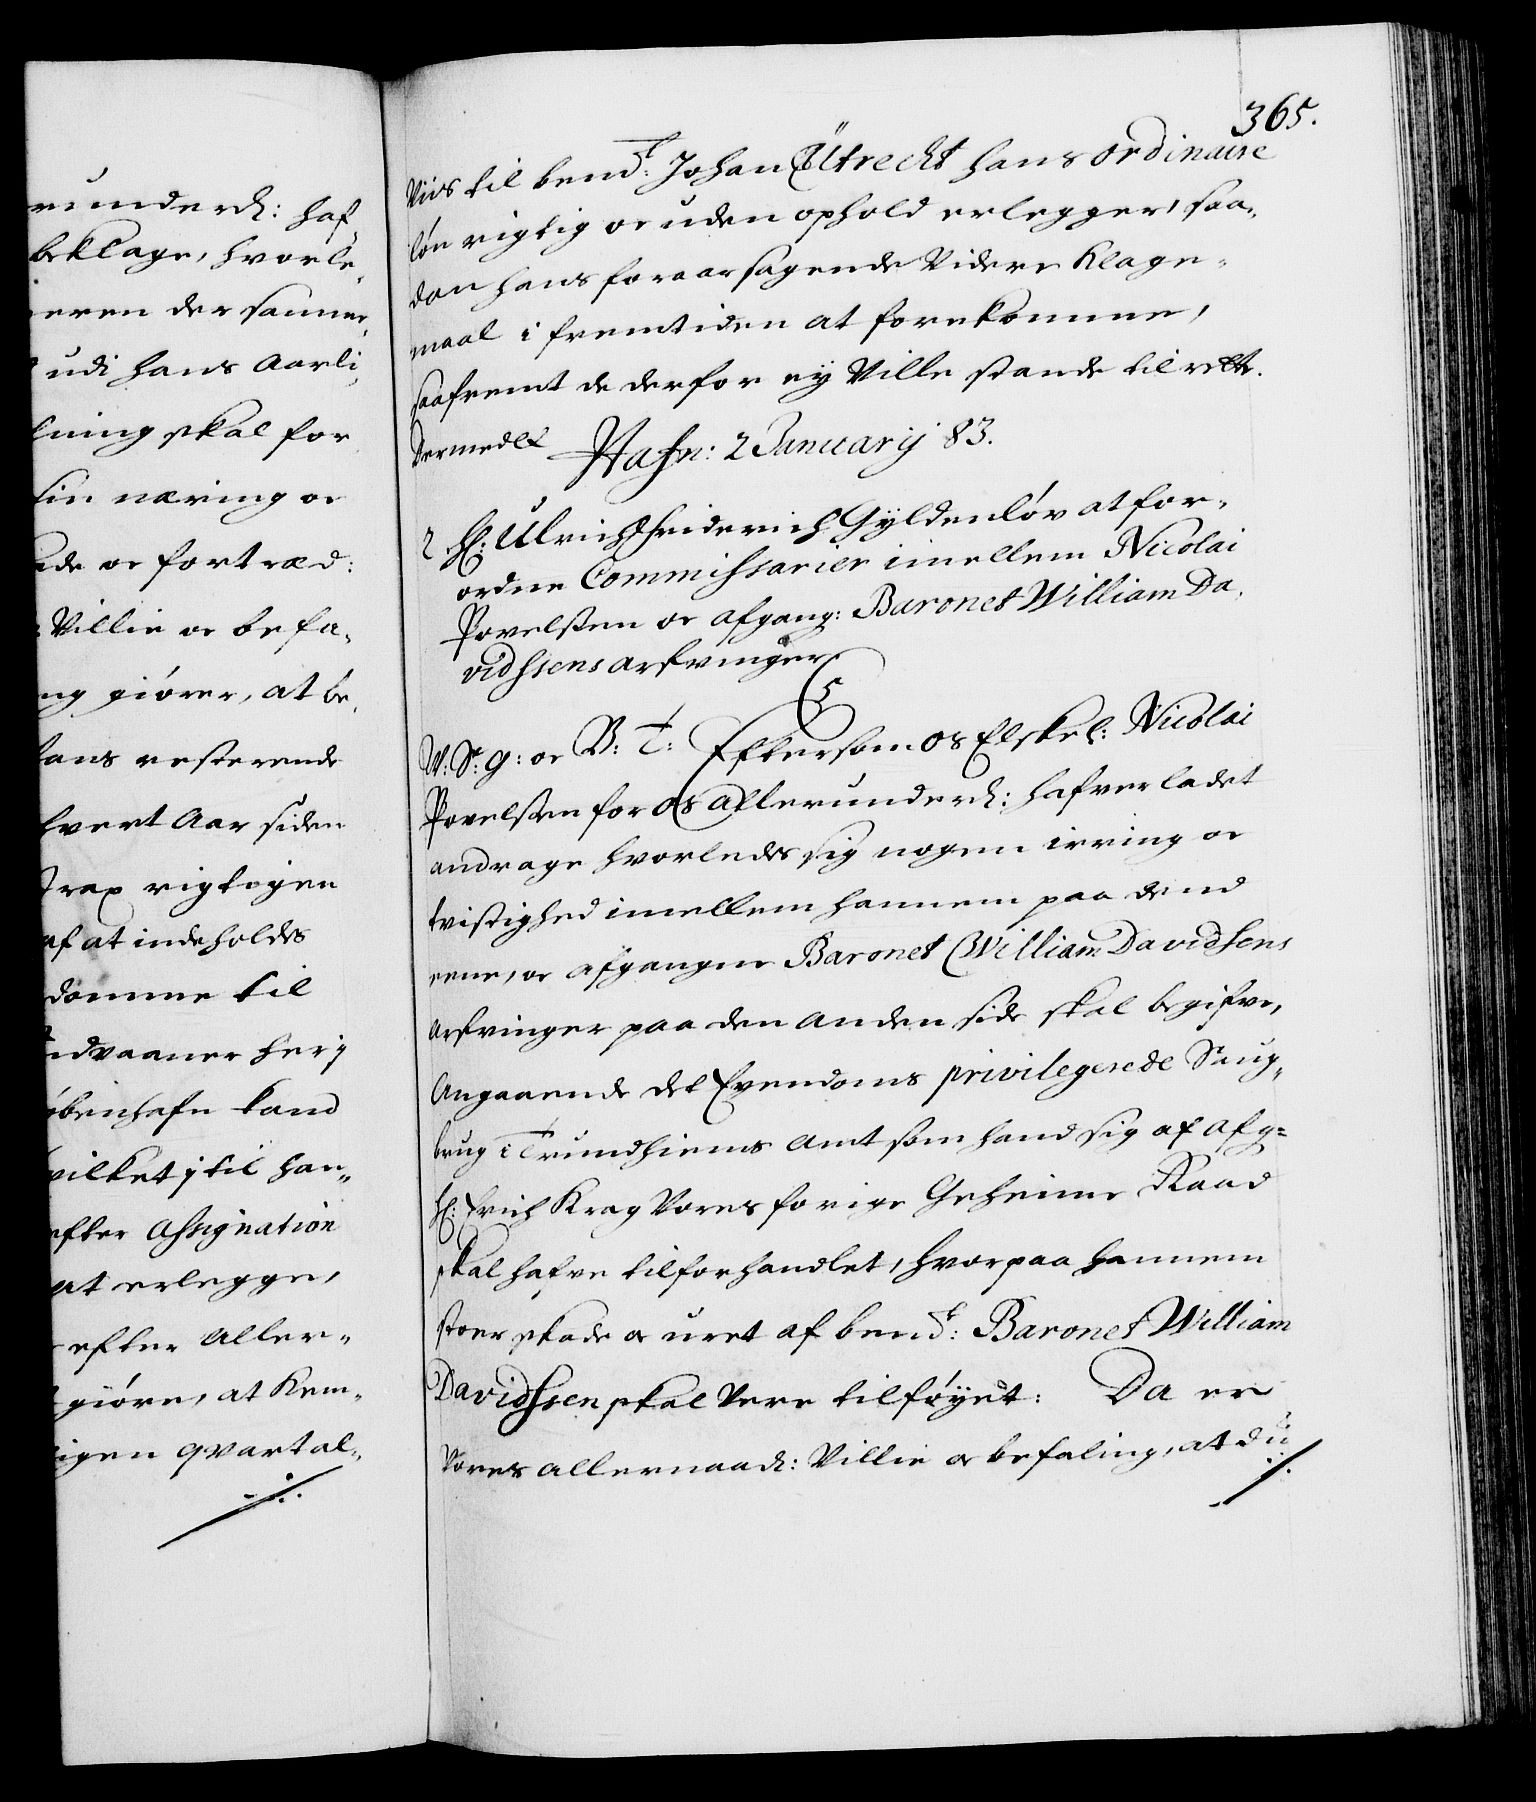 runderd: haf,
beklage, hvorle,
eren der sammes,
udi hans Aarli,
lning skal for
sin næring oc
ade oc fortræd:
Villie oc befa,
ng giører, at be,
hans resterende
hvert Aar siden
strax rigtigen
af at indeholdes
domme til
ndvaaner her j
øbenhafn kand
hvilket j til han,
efter Assignation
at erlegge,
efter Aller,
giøre, at Kem,
igen qvartal,
365.
Viis til bend.te Johan Ütrecht hans ordinaire
løn rigtig oc uden ophold erlegger, saa,
dan hans foraarsagende Videre Klage,
maal i fremtiden at forekomme,
saafremt de derfor ey Ville stande til rette.
Dermed &c Hafn: 2 Januarij 83.
2 H: Ulrich Friderich Gyldenløv at for,
ordne Commissarier imellem Nicolai
Povelssen oc afgang: Baronet William Da,
vidssens arfvinger
C5
W: S: g: oc B: T: Eftersom os Elskel: Nicolai
Povelssen for os allerunderd: hafver ladet
andrage hvorledes sig nogen irring oc
tvistighed imellem hannem paa dend
eene, oc afgangne Baronet William Davidsens
arfvinger paa den anden side skal begifve,
Angaaende det Eyendoms privilegerede Saug,
brug i Trundhiems Amt som hand sig af afg=
H: Erich Krag Vores forige Geheime Raad
skal hafve tilforhandlet, hvorpaa hannem
stoer skade oc uret af bend.te: Baronet William
Davidssen skal Vere tilføyet: Da er
Vores allernaad: Villie oc befaling, at du